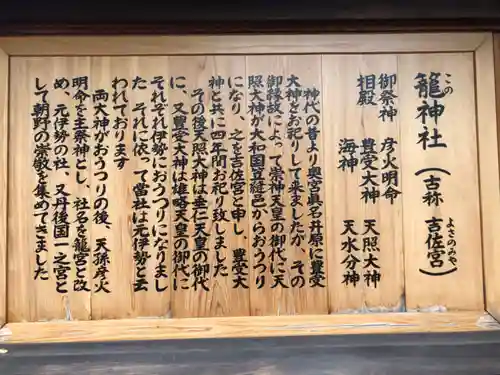 この
籠神社(古称 吉佐宮)
よさのみや
御祭神 彦火明命
相殿 豊受大神 天照大神
海神 天水分神
神代の昔より奥宮眞名井原に豊受
大神をお祀りして来ましたが、その
御縁故によって崇神天皇の御代に天
照大神が大和国笠縫邑からおうつり
になり、之を吉佐宮と申し、豊受大
神と共に四年間お祀り致しました
その後天照大神は垂仁天皇の御代
に、又豊受大神は雄略天皇の御代に
それぞれ伊勢におうつりになりまし
た それに依って当社は元伊勢と云
われております
両大神がおうつりの後、天孫彦火
明命を主祭神とし、社名を籠宮と改
め、元伊勢の社、又丹後国一之宮と
して朝野の崇敬を集めてきました